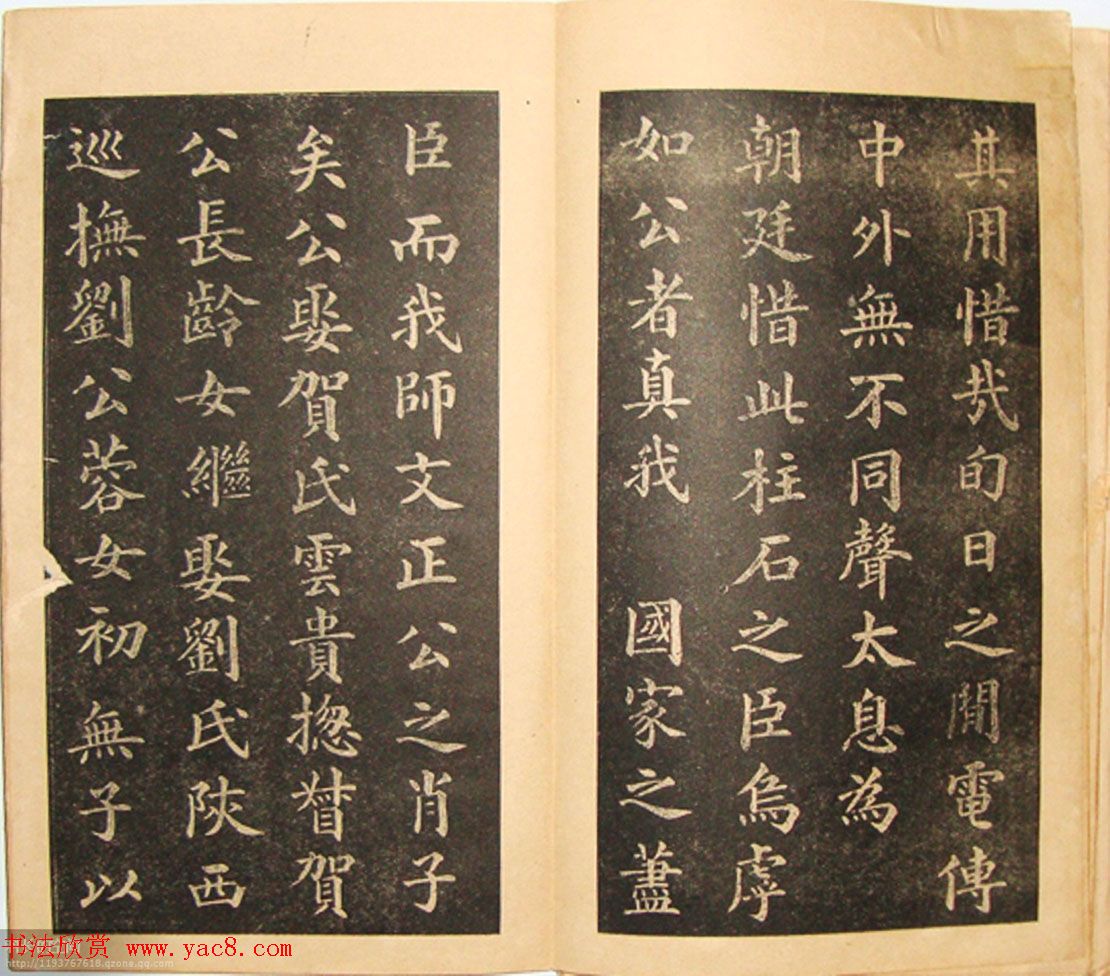 其用惜哉旬日之間電傳
中外無不同聲太息為
朝廷惜此柱石之臣烏虖
如公者真我 國家之藎
臣而我師文正公之肖子
矣公娶賀氏雲貴揔督賀
公長齡女繼娶劉氏陝西
巡撫劉公蓉女初無子以
书法欣赏 www.yac8.com
http://1193767618.qzone.qq.com